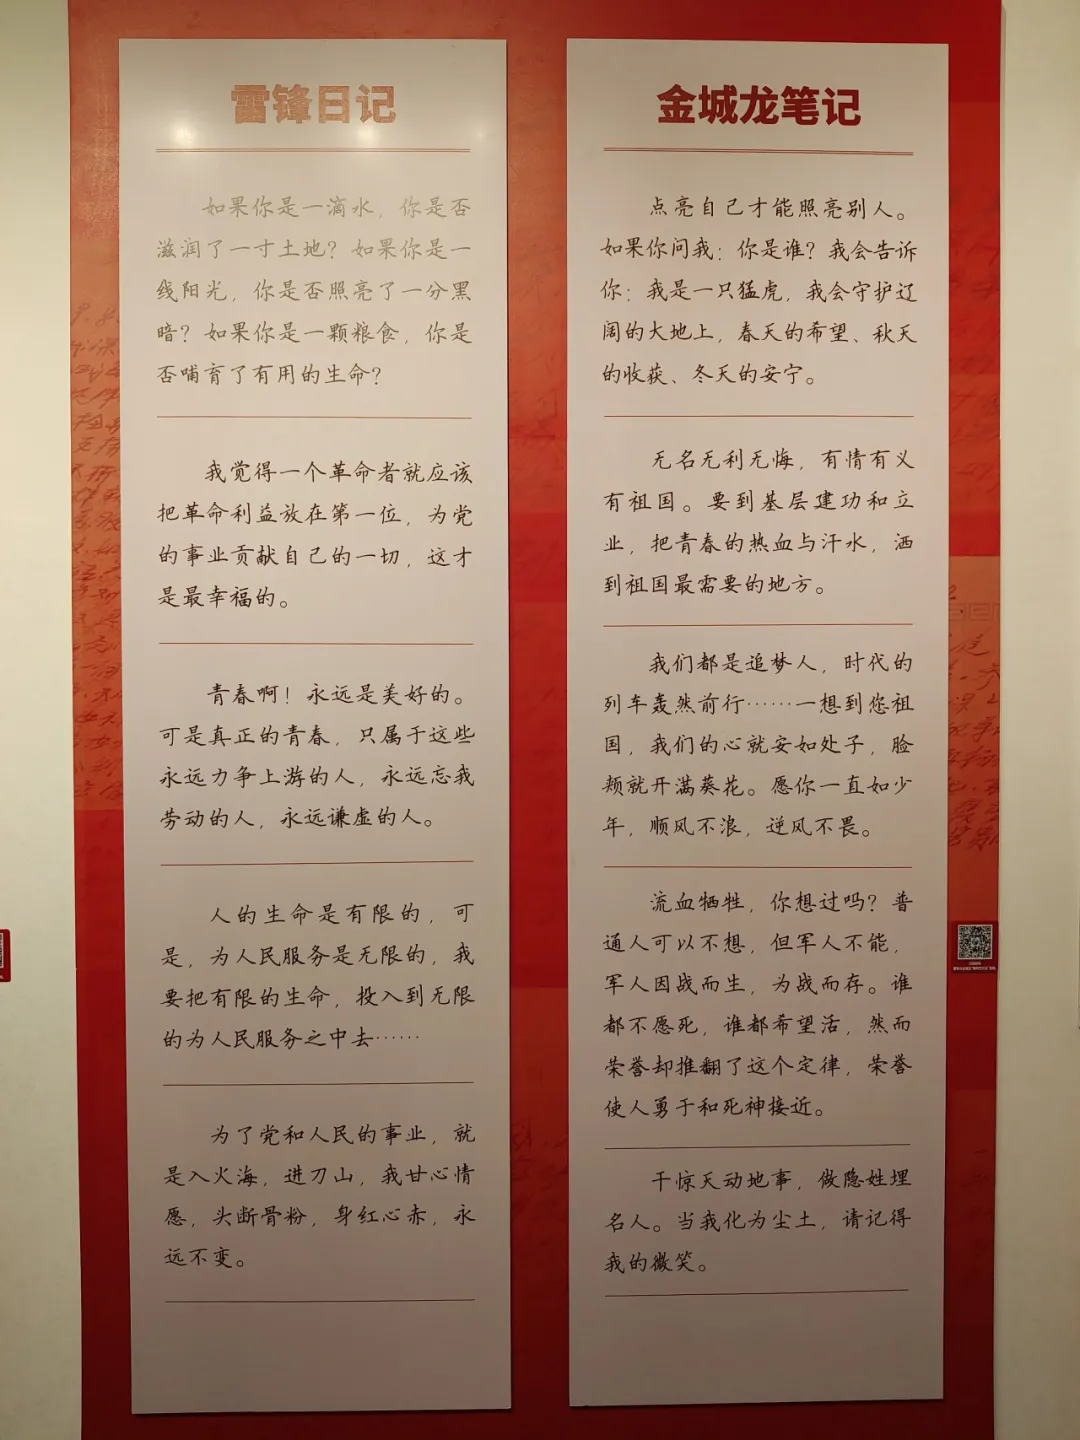 雷锋日记
如果你是一滴水，你是否
滋润了一寸土地？如果你是一
线阳光，你是否照亮了一分黑
暗？如果你是一颗粮食，你是
否哺育了有用的生命？
我觉得一个革命者就应该
把革命利益放在第一位，为党
的事业贡献自己的一切，这才
是最幸福的。
青春啊！永远是美好的。
可是真正的青春，只属于这些
永远力争上游的人，永远忘我
劳动的人，永远谦虚的人。
人的生命是有限的，可
是，为人民服务是无限的，我
要把有限的生命，投入到无限
的为人民服务之中去……
为了党和人民的事业，就
是入火海，进刀山，我甘心情
愿，头断骨粉，身红心赤，永
远不变。
金城龙笔记
点亮自己才能照亮别人。
如果你问我：你是谁？我会告诉
你：我是一只猛虎，我会守护辽
阔的大地上，春天的希望、秋天
的收获、冬天的安宁。
无名无利无悔，有情有义
有祖国。要到基层建功和立
业，把青春的热血与汗水，洒
到祖国最需要的地方。
我们都是追梦人，时代的
列车轰然前行……一想到您祖
国，我们的心就安如处子，脸
颊就开满葵花。愿你一直如少
年，顺风不浪，逆风不畏。
流血牺牲，你想过吗？普
通人可以不想，但军人不能，
军人因战而生，为战而存。谁
都不愿死，谁都希望活，然而
荣誉却推翻了这个定律，荣誉
使人勇于和死神接近。
干惊天动地事，做隐姓埋
名人。当我化为尘土，请记得
我的微笑。